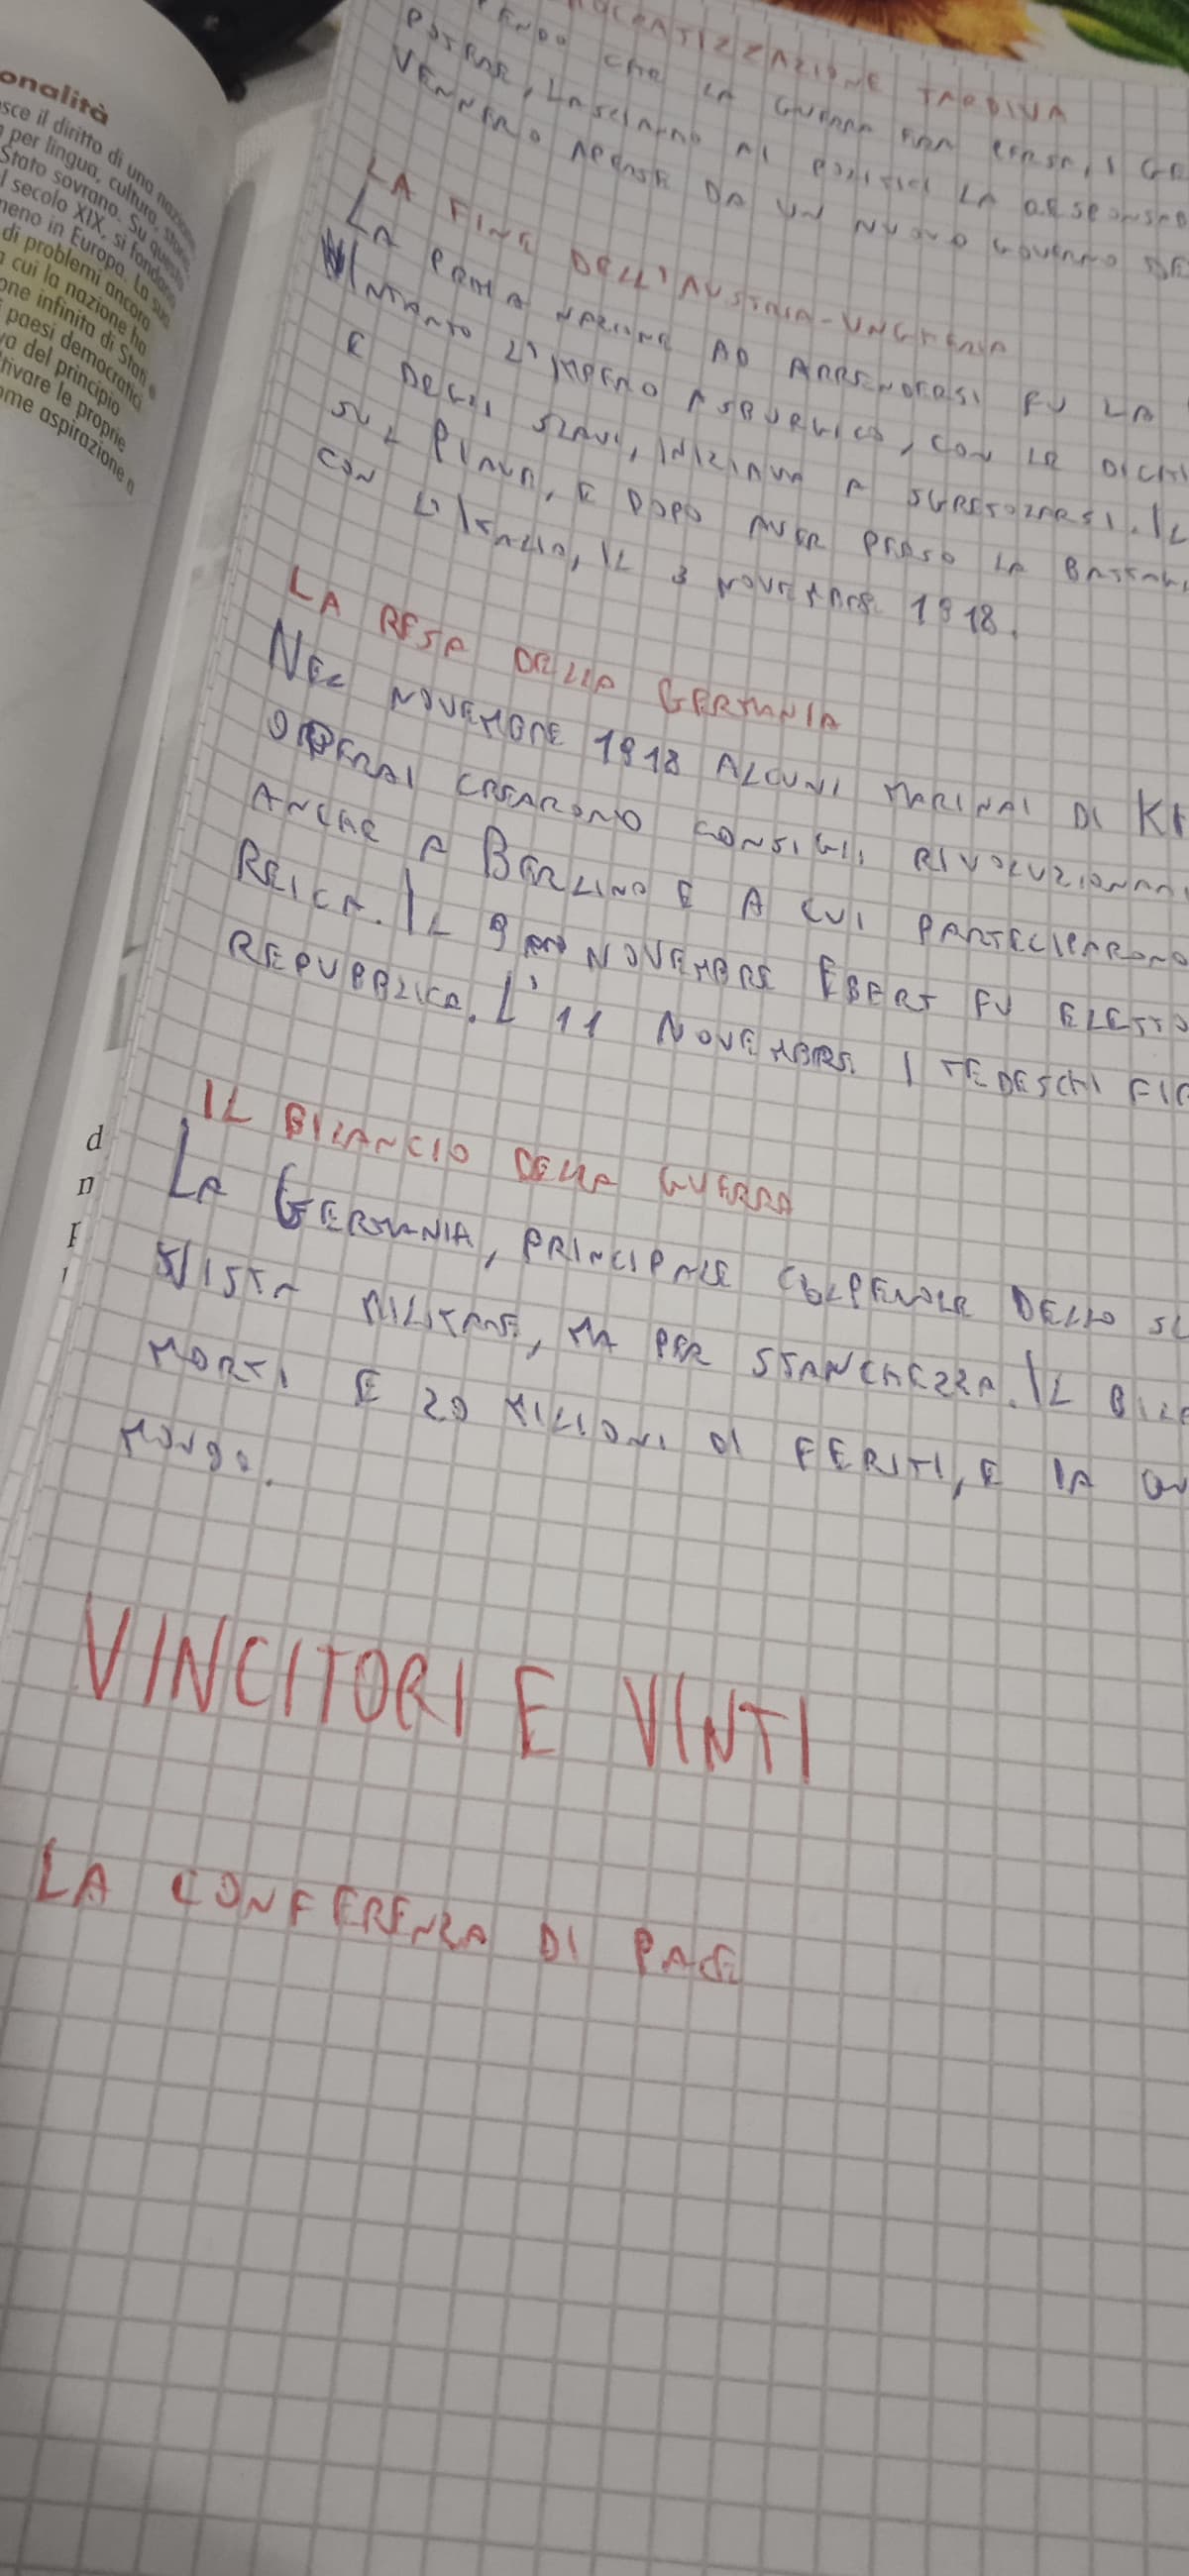 onalità
sce il diritto di una nazione
per lingua, cultura, storia
Stato sovrano. Su questo
l secolo XIX, si fondano
meno in Europa. La sua
di problemi ancora
cui la nazione ha
one infinito di Stati e
paesi democratici
va del principio
tivare le proprie
ome aspirazione a
d
n
TARDIVA
ENDO CHE LA GUERRA ERA PERSA, I GE
LASCIARONO AI POLITICI LA RESPONSAB
VENNERO APERTE DA UN NUOVO GOVERNO DE
LA FINE DELL'AUSTRIA-UNGHERIA
LA PRIMA NAZIONE AD ARRENDERSI FU LA
INTANTO L'IMPERO ASBURGICO, CON LE DICHI
E DEGLI SLAVI, INIZIAVA A SGRETOLARSI. IL
SUL PIAVE, E DOPO AVER PERSO LA BATTAGL
CON L'ITALIA, IL 3 NOVEMBRE 1918.
LA RESA DELLA GERMANIA
NEL NOVEMBRE 1918 ALCUNI MARINAI DI KI
OPERAI CREARONO CONSIGLI RIVOLUZIONARI
ANCHE A BERLINO E A CUI PARTECIPARONO
REICH. IL 9 NOVEMBRE EBERT FU ELETTO
REPUBBLICA. L'11 NOVEMBRE I TEDESCHI FIR
IL BILANCIO DELLA GUERRA
LA GERMANIA, PRINCIPALE COLPEVOLE DELLO SC
VISTA MILITARE, MA PER STANCHEZZA. IL BILA
MORTI E 20 MILIONI DI FERITI, E LA
MONDO.
VINCITORI E VINTI
LA CONFERENZA DI PACE